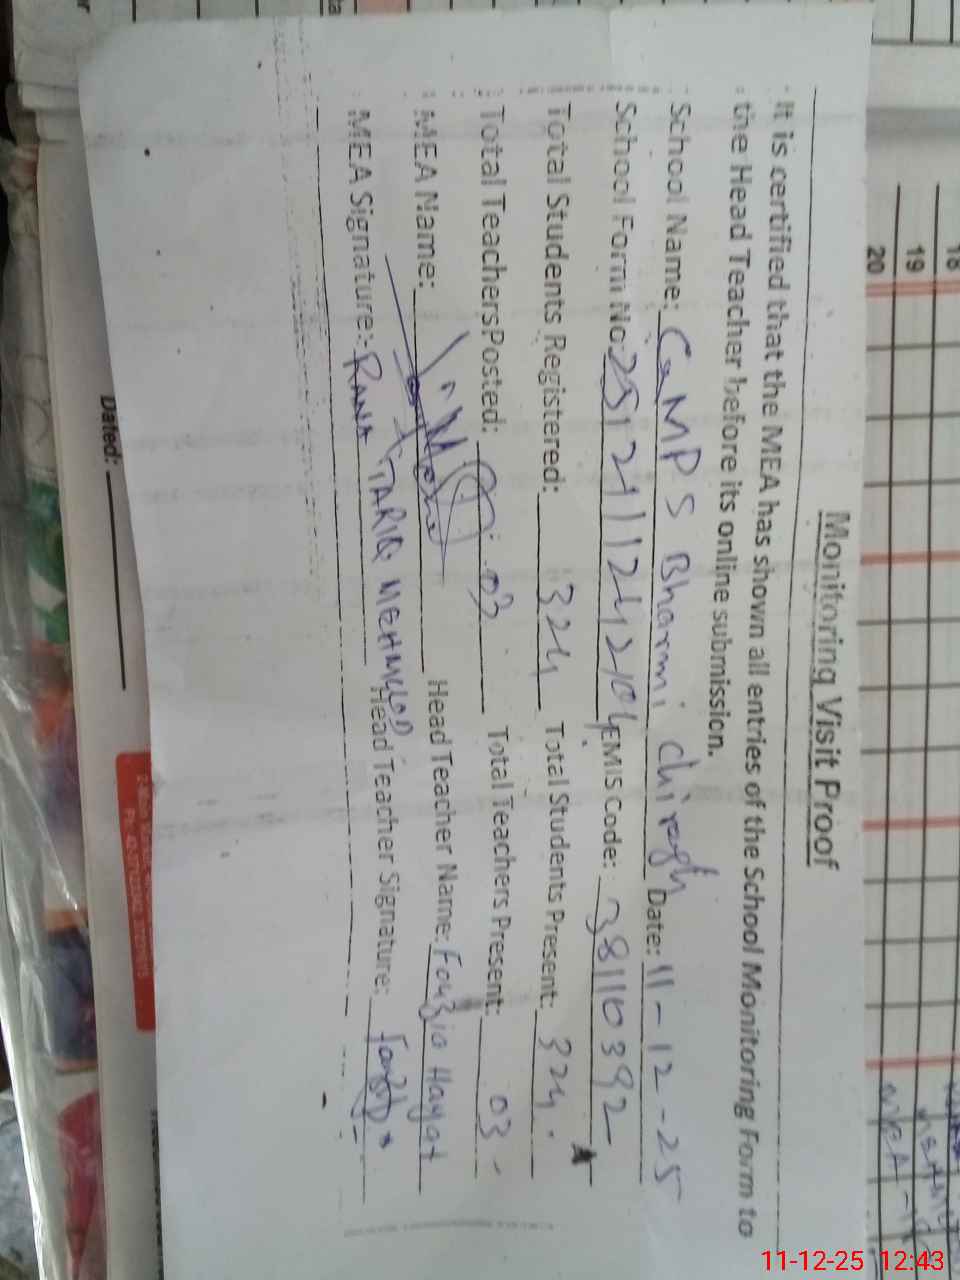 Monitoring Visit Proof
It is certified that the MEA has shown all entries of the School Monitoring Form to
the Head Teacher before its online submission.
School Name: GMPS Bharmi chiragh Date: 11-12-25
School Form No: EMIS Code: 38110392
Total Students Registered: 324 Total Students Present: 324.
Total Teachers Posted: 03 Total Teachers Present: 03
MEA Name: Head Teacher Name: Fouzia Hayat
MEA Signature: RANA TARIQ MEHMOOD Head Teacher Signature:
Dated:
18
19
20
11-12-25 12:43